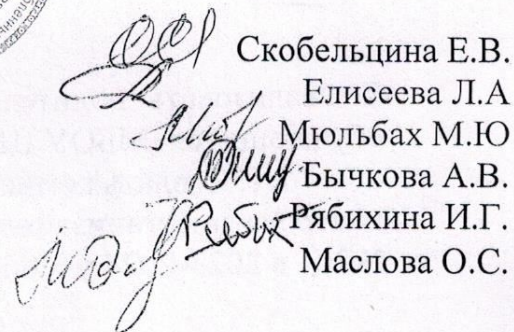 Скобельцина Е.В.
Елисеева Л.А
Мюльбах М.Ю
Бычкова А.В.
Рябихина И.Г.
Маслова О.С.